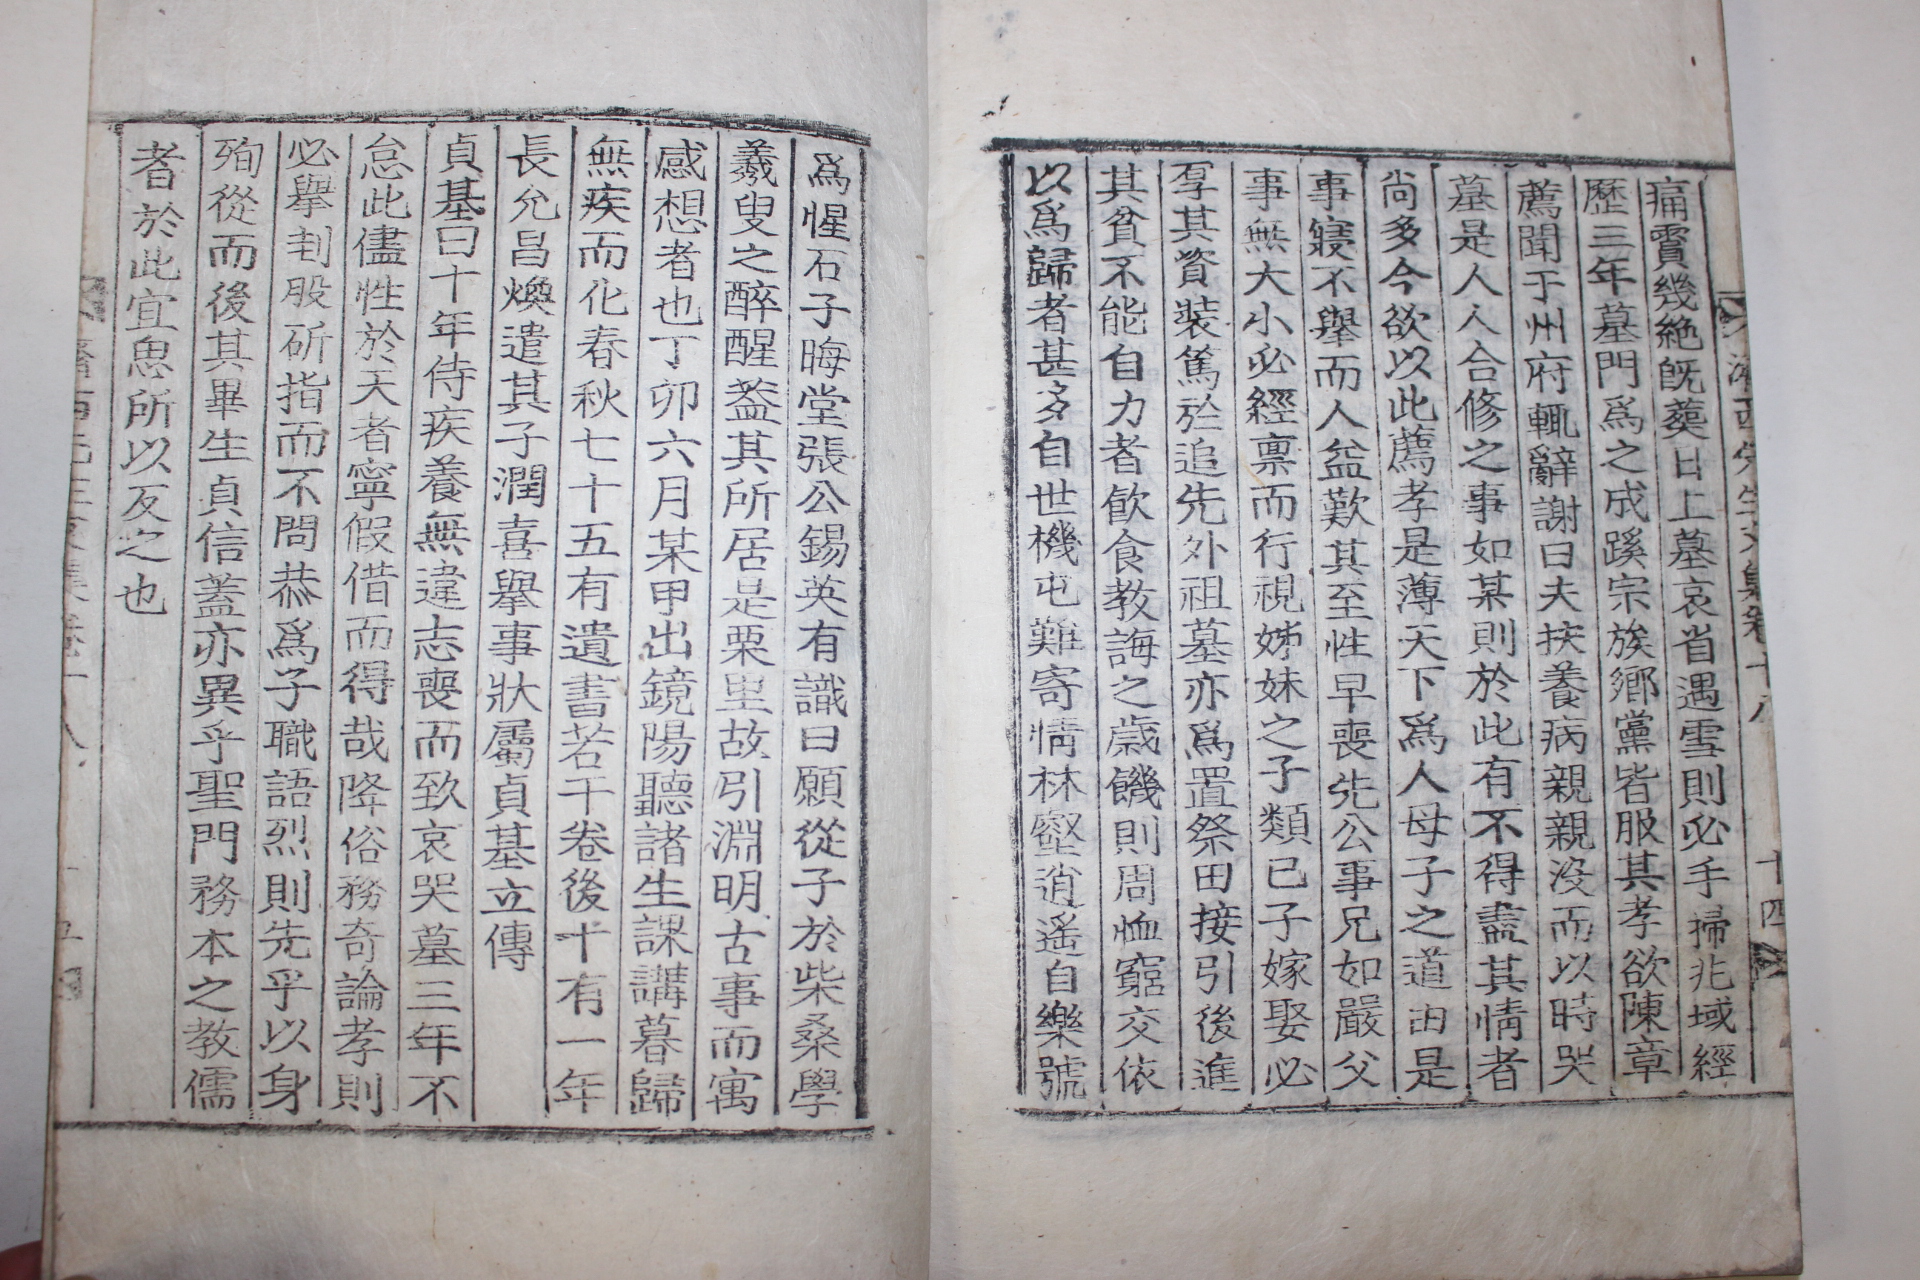 痛霣幾絶旣葬日上墓哀省遇雪則必手掃兆域經
歷三年墓門爲之成蹊宗族鄕黨皆服其孝欲陳章
薦聞于州府輒辭謝曰夫扶養病親親沒而以時哭
墓是人人合修之事如某則於此有不得盡其情者
尙多今欲以此薦孝是薄天下爲人母子之道由是
事寢不擧而人益歎其至性早喪先公事兄如嚴父
事無大小必經稟而行視姊妹之子類已子嫁娶必
厚其資裝篤於追先外祖墓亦爲置祭田接引後進
其貧不能自力者飮食敎誨之歲饑則周恤窮交依
以爲歸者甚多自世機屯難寄情林壑逍遙自樂號
十四
爲惺石子晦堂張公錫英有識曰願從子於柴桑學
羲叟之醉醒盖其所居是栗里故引淵明古事而寓
感想者也丁卯六月某甲出鏡陽聽諸生課講暮歸
無疾而化春秋七十五有遺書若干卷後十有一年
長允昌煥遣其子潤喜擧事狀屬貞基立傳
貞基曰十年侍疾養無違志喪而致哀哭墓三年不
怠此儘性於天者寧假借而得哉降俗務奇論孝則
必擧刲股斫指而不問恭爲子職語烈則先乎以身
殉從而後其畢生貞信蓋亦異乎聖門務本之敎儒
者於此宜思所以反之也